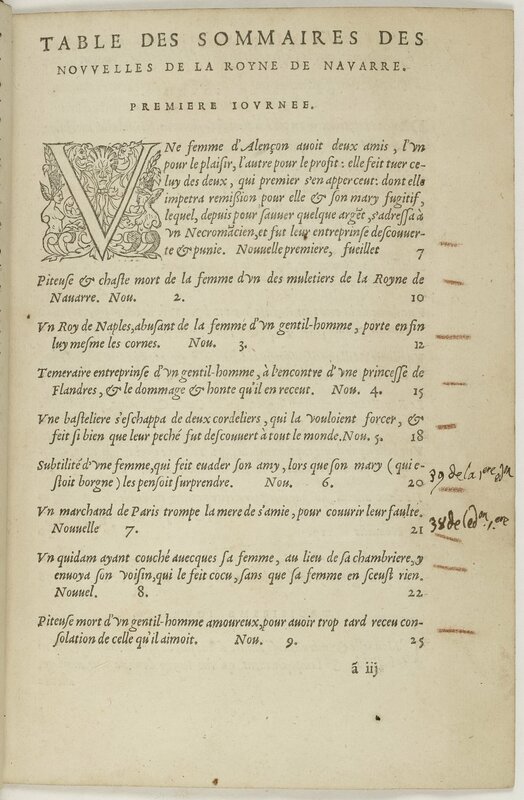 TABLE DES SOMMAIRES DES
NOVVELLES DE LA ROYNE DE NAVARRE.
PREMIERE IOVRNEE.
VNe femme d'Alençon auoit deux amis, l'vn
pour le plaisir, l'autre pour le profit: elle feit tuer ce-
luy des deux, qui premier s'en apperceut: dont elle
impetra remission pour elle & son mary fugitif,
lequel, depuis pour sauuer quelque argẽt, s'adressa à
vn Necromãcien, et fut leur entreprinse descouuer-
te & punie. Nouuelle premiere, fueillet 7
Piteuse & chaste mort de la femme d'vn des muletiers de la Royne de
Nauarre. Nou. 2. 10
Vn Roy de Naples, abusant de la femme d'vn gentil-homme, porte en fin
luy mesme les cornes. Nou. 3. 12
Temeraire entreprinse d'vn gentil-homme, à l'encontre d'vne princesse de
Flandres, & le dommage & honte qu'il en receut. Nou. 4. 15
Vne basteliere s'eschappa de deux cordeliers, qui la vouloient forcer, &
feit si bien que leur peché fut descouuert à tout le monde. Nou. 5. 18
Subtilité d'vne femme, qui feit euader son amy, lors que son mary (qui e-
stoit borgne) les pensoit surprendre. Nou. 6. 20
39 de la 1ere edon
Vn marchand de Paris trompe la mere de s'amie, pour couurir leur faulte.
Nouuelle 7. 21
38 de edon 1.ere
Vn quidam ayant couché auecques sa femme, au lieu de sa chambriere, y
enuoya son voisin, qui le feit cocu, sans que sa femme en sceust rien.
Nouuel. 8. 22
Piteuse mort d'vn gentil-homme amoureux, pour auoir trop tard receu con-
solation de celle qu'il aimoit. Nou. 9. 25
ã iij